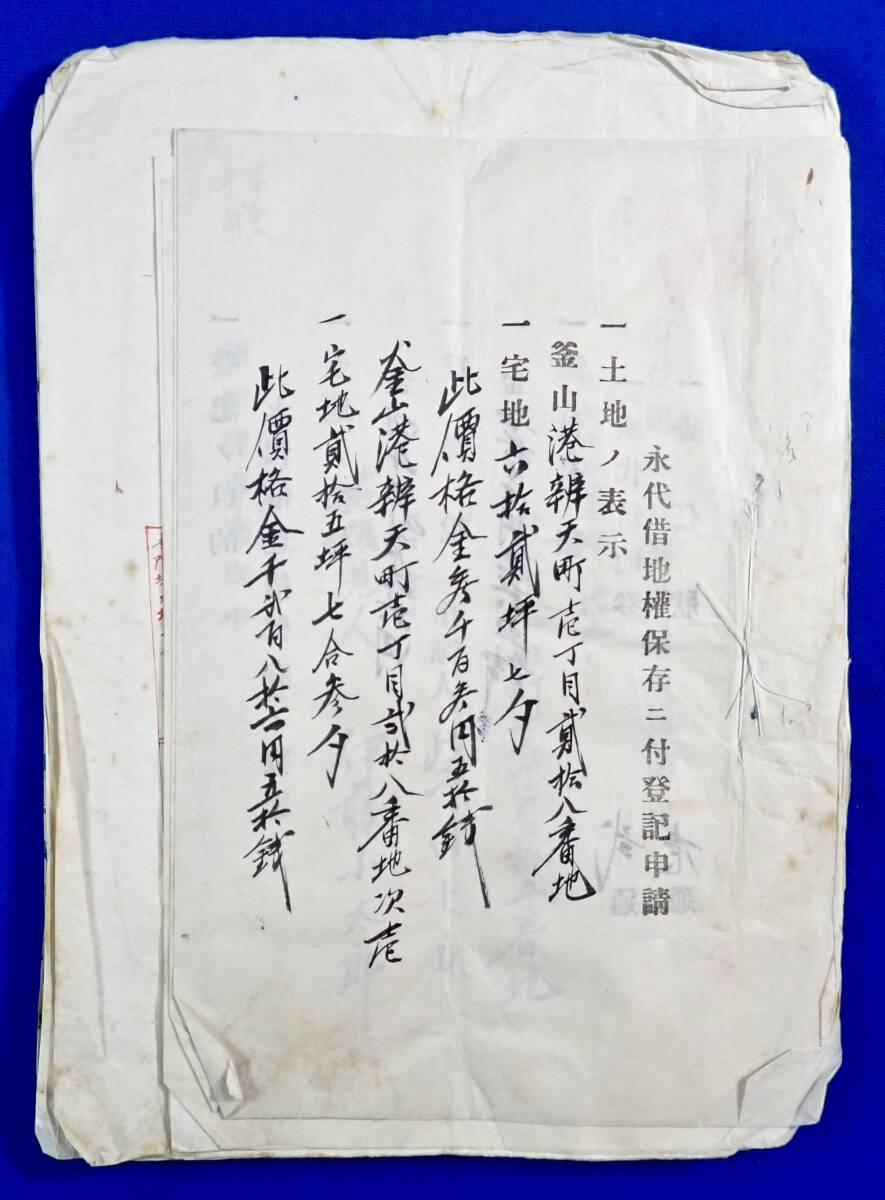 永代借地權保存ニ付登記申請
一土地ノ表示
釜山港辨天町壱丁目貳拾八番地
一宅地六拾貳坪七夕
此價格金参千百参円五拾銭
釜山港辨天町壱丁目弐拾八番地次壱
一宅地貳拾五坪七合参夕
此價格金千弐百八拾六円五拾銭